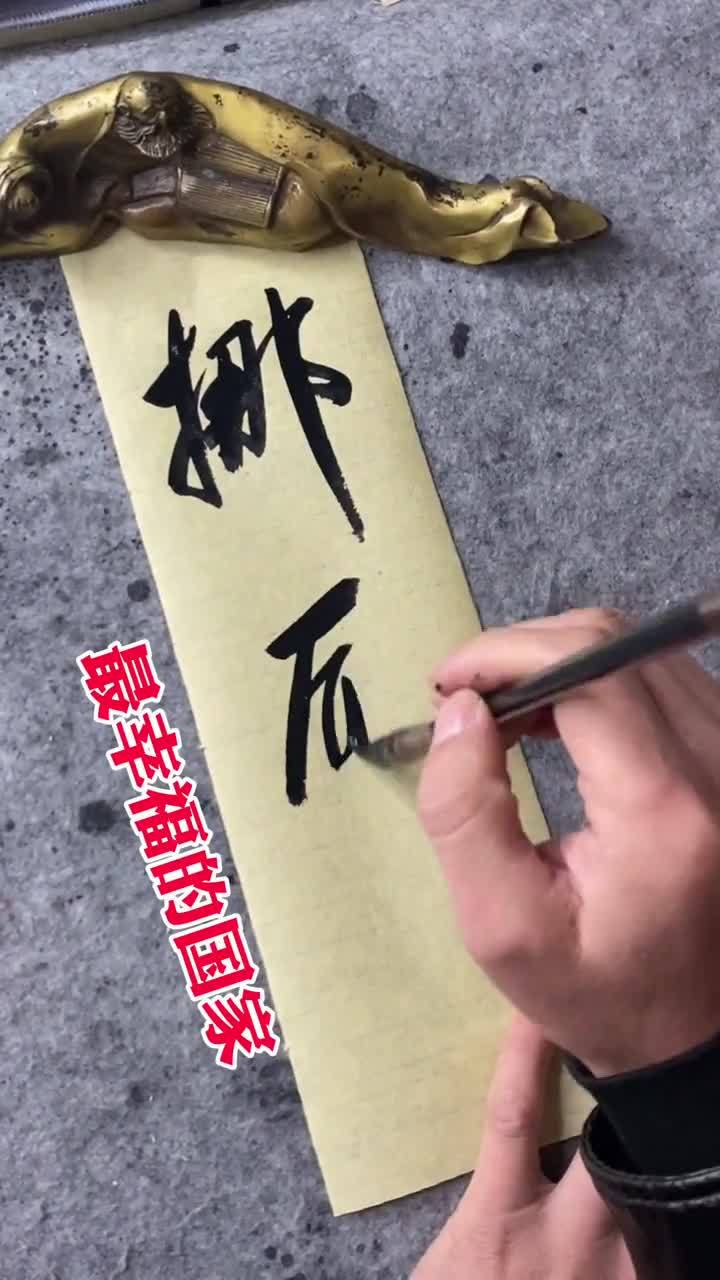 挪
最幸福的国家